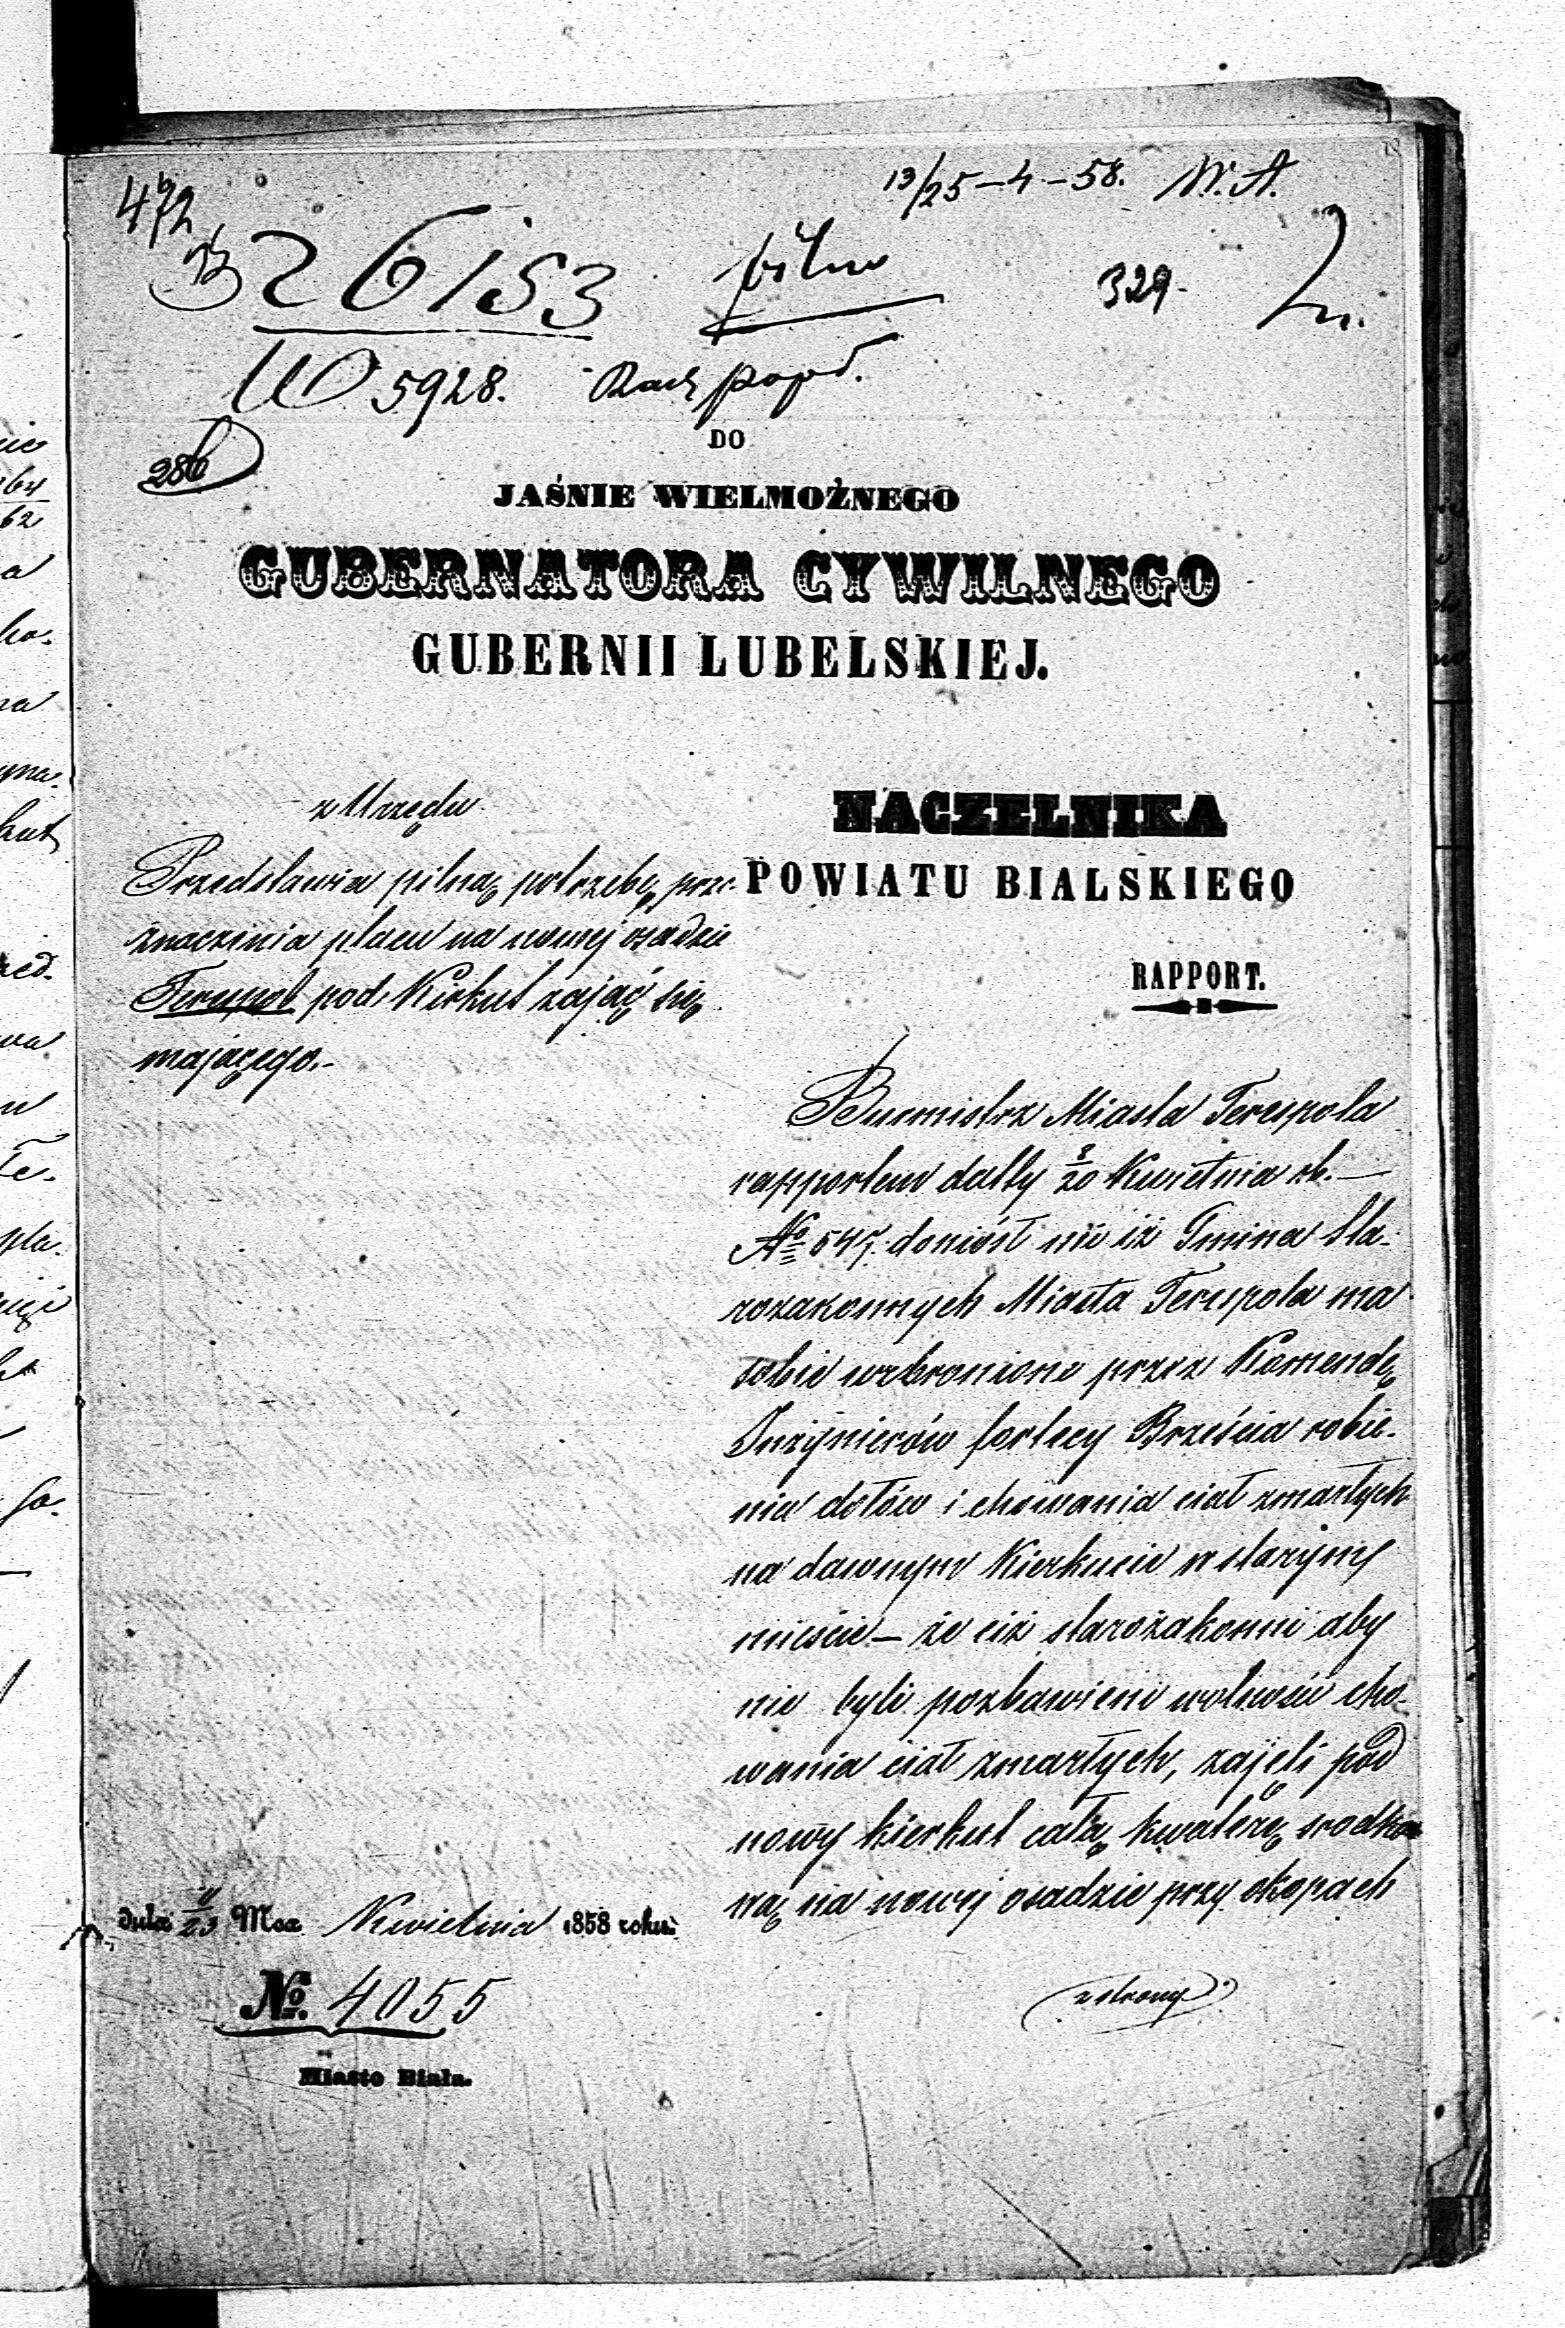 472
13/25-4-58. W. A.
26153 pilno
329.
5928.
286
DO
JAŚNIE WIELMOŻNEGO
GUBERNATORA CYWILNEGO
GUBERNII LUBELSKIEJ.
z Urzędu
Przedstawia pilną potrzebę prze-
znaczenia placu na nowej osadzie
Terespol pod Kirkut zająć się
mającego.-
NACZELNIKA
POWIATU BIALSKIEGO
RAPPORT.
Burmistrz Miasta Terespola
rapportem datty 8/20 Kwietnia rb. —
No 547. doniósł mi iż Gmina Sta-
rozakonnych Miasta Terespola ma
sobie wzbronione przez Komendę
Inżynierów fortecy Brześcia robie-
nia dołów i chowania ciał zmarłych
na dawnym Kierkucie w starym
mieście — że ciż starozakonni aby
nie byli pozbawieni wolności cho-
wania ciał zmarłych, zajęli pod
nowy kierkut całą kwaterę srodko
wą na nowej osadzie przy okopach
dnia 11/23 Mca Kwietnia 1858 roku.
No. 4055
Miasto Biała.
z strony